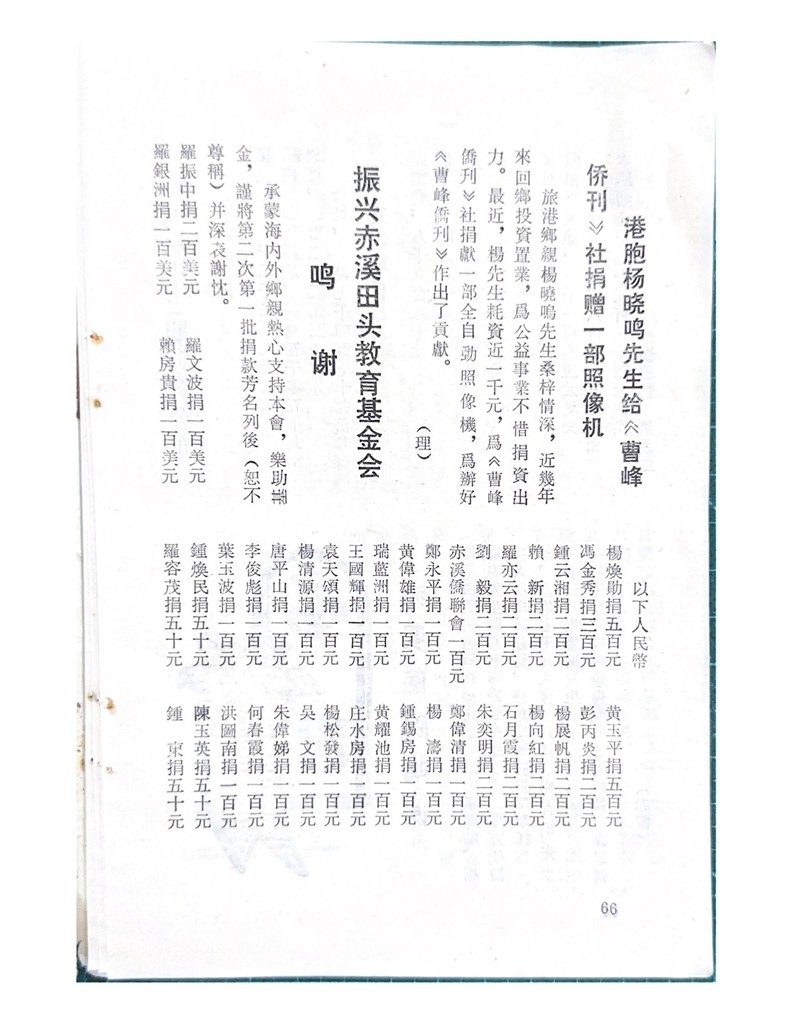 港胞杨晓鸣先生给《曹峰
侨刊》社捐赠一部照像机
旅港鄉親楊曉鳴先生桑梓情深，近幾年
來回鄉投資置業，爲公益事業不惜捐資出
力。最近，楊先生耗資近一千元，爲《曹峰
僑刊》社捐獻一部全自動照像機，爲辦好
《曹峰僑刊》作出了貢獻。
（理）
振兴赤溪田头教育基金会
鸣谢
承蒙海內外鄉親熱心支持本會，樂助
金，謹將第二次第一批捐款芳名列後（恕不
尊稱）并深表謝忱。
羅振中捐二百美元
羅文波捐一百美元
羅銀洲捐一百美元
賴房貴捐一百美元
以下人民幣
楊煥勛捐五百元
黃玉平捐五百元
馮金秀捐三百元
彭丙炎捐二百元
鍾云湘捐二百元
楊展帆捐二百元
賴新捐二百元
楊向紅捐二百元
羅亦云捐二百元
石月霞捐二百元
劉毅捐二百元
朱奕明捐二百元
赤溪僑聯會一百元
鄭偉清捐一百元
鄭永平捐一百元
楊濤捐一百元
黃偉雄捐一百元
鍾錫房捐一百元
瑞藍洲捐一百元
黃耀池捐一百元
王國輝捐一百元
庄水房捐一百元
袁天頌捐一百元
楊松發捐一百元
楊清源捐一百元
吳文捐一百元
唐平山捐一百元
朱偉娣捐一百元
李俊彪捐一百元
何春霞捐一百元
葉玉波捐一百元
洪圖南捐一百元
鍾煥民捐五十元
陳玉英捐五十元
羅容茂捐五十元
鍾東捐五十元
66